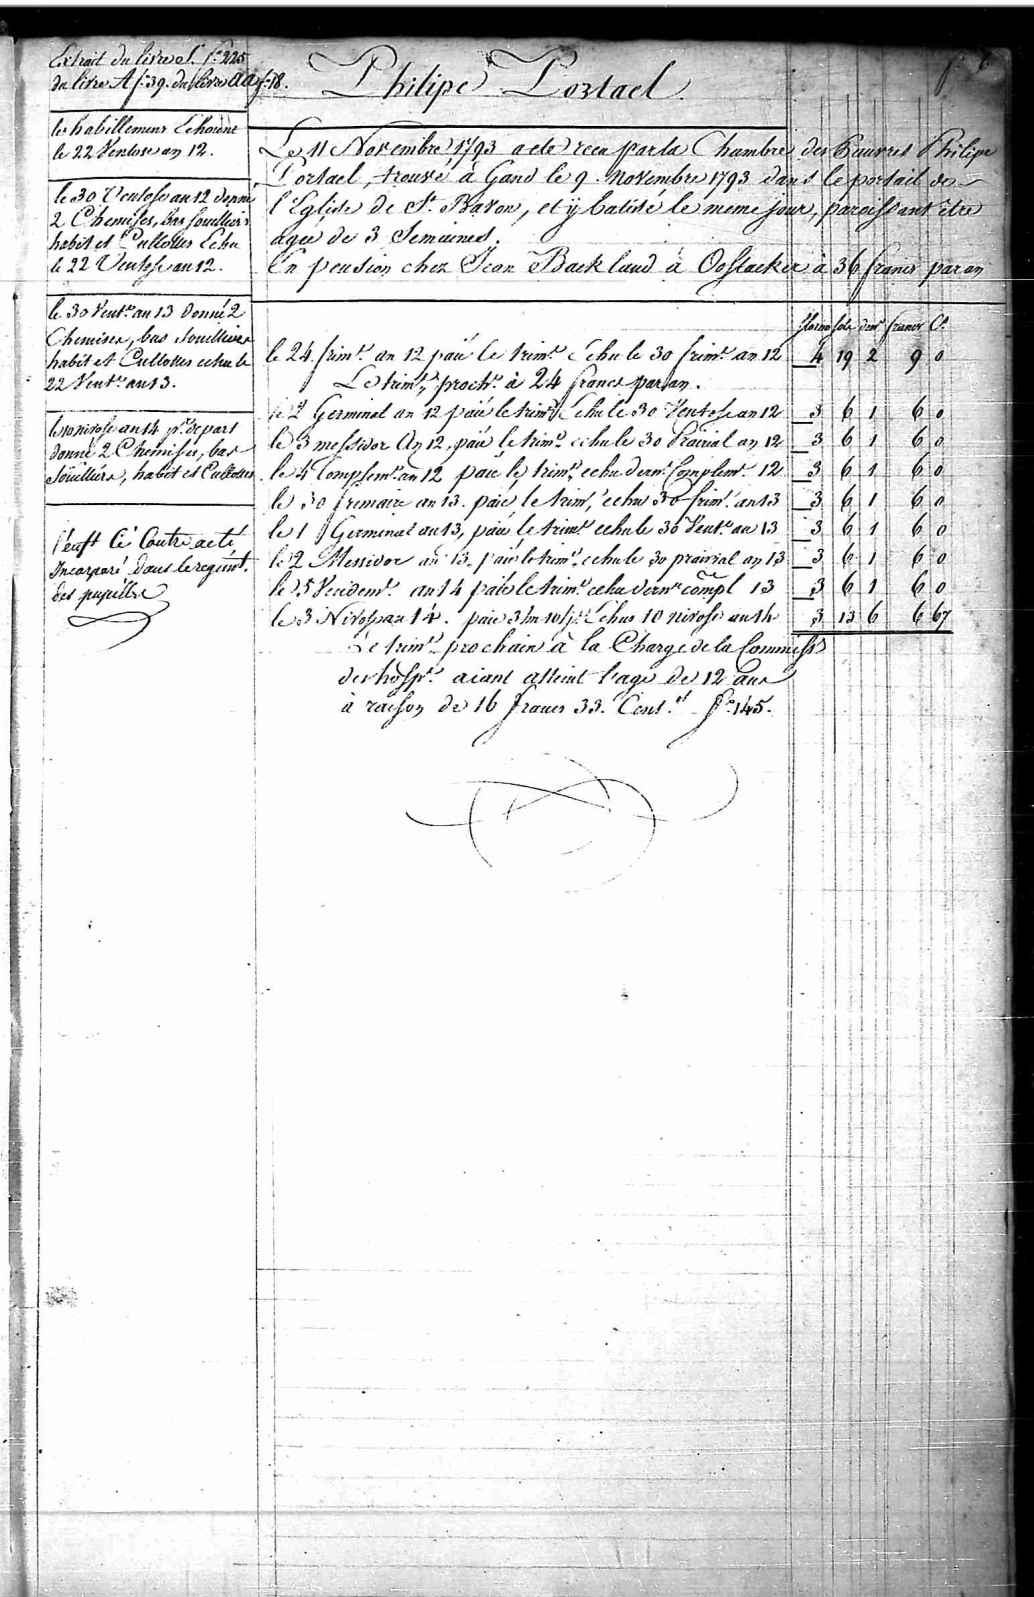 Extrait du livre S. f.º 225
du livre A f. 39. du livre AA f. 18.
Philipe Portael.
les habillemens Echoient
le 22 Ventose an 12.
le 30 Ventose an 12 donné
2 Chemises, bas souilliers
habit et Cullottes Echu
le 22 Ventose an 12.
le 30 Vent.e an 13 Donné 2
Chemises, bas souilliers
habit et Cullottes echu le
22 Vent.e an 13.
le 10 nivose an 14 pr. depart
donné 2 Chemises, bas
souilliers, habit et Cullottes
l'enft ci Contre a eté
Incorporé dans le regimt.
des pupilles
Le 11 Novembre 1793 a eté recu par la Chambre des Pauvres Philipe
Portael, trouvé à Gand le 9. Novembre 1793 dans le portail de
l'Eglise de St. Bavon, et ÿ batisé le meme jour, paroissant être
agée de 3 Semaines.
En pension chez Jean Baek laud à Oostacker à 36 francs par an
florins sols den.s francs C.s
le 24. frim.e an 12 paié le trim.e Echu le 30 frim.e an 12 4 19 2 9 0
Le trim.e proch.n à 24 francs par an.
le 2 Germinal an 12 paié le trim.e Echu le 30 Ventose an 12 3 6 1 6 0
le 3 messidor An 12, paié le trim.e echu le 30 Prairial an 12 3 6 1 6 0
le 4 Complem.e an 12 paié le trim.e echu dern.r Complem.e 12 3 6 1 6 0
le 30 fremaire an 13. paié le trim.e echu 30 frim.e an 13 3 6 1 6 0
le 1 Germinal an 13, paié le trim.e echu le 30 Vent.e an 13 3 6 1 6 0
le 2 Messidor an 13. paié le trim.e echu le 30 prairial an 13 3 6 1 6 0
le 5 Vendem.e an 14 paié le trim.e echu dern.r compl 13 3 6 1 6 0
le 3 Nivose an 14. paié 3 m 10 j.s Echus 10 nivose an 14 3 13 6 6 67
Le trim.e prochain à la Charge de la Commiss.
des hosp.s aiant atteint l'age de 12 ans
à raison de 16 francs 33. Cent.s f.º 145.